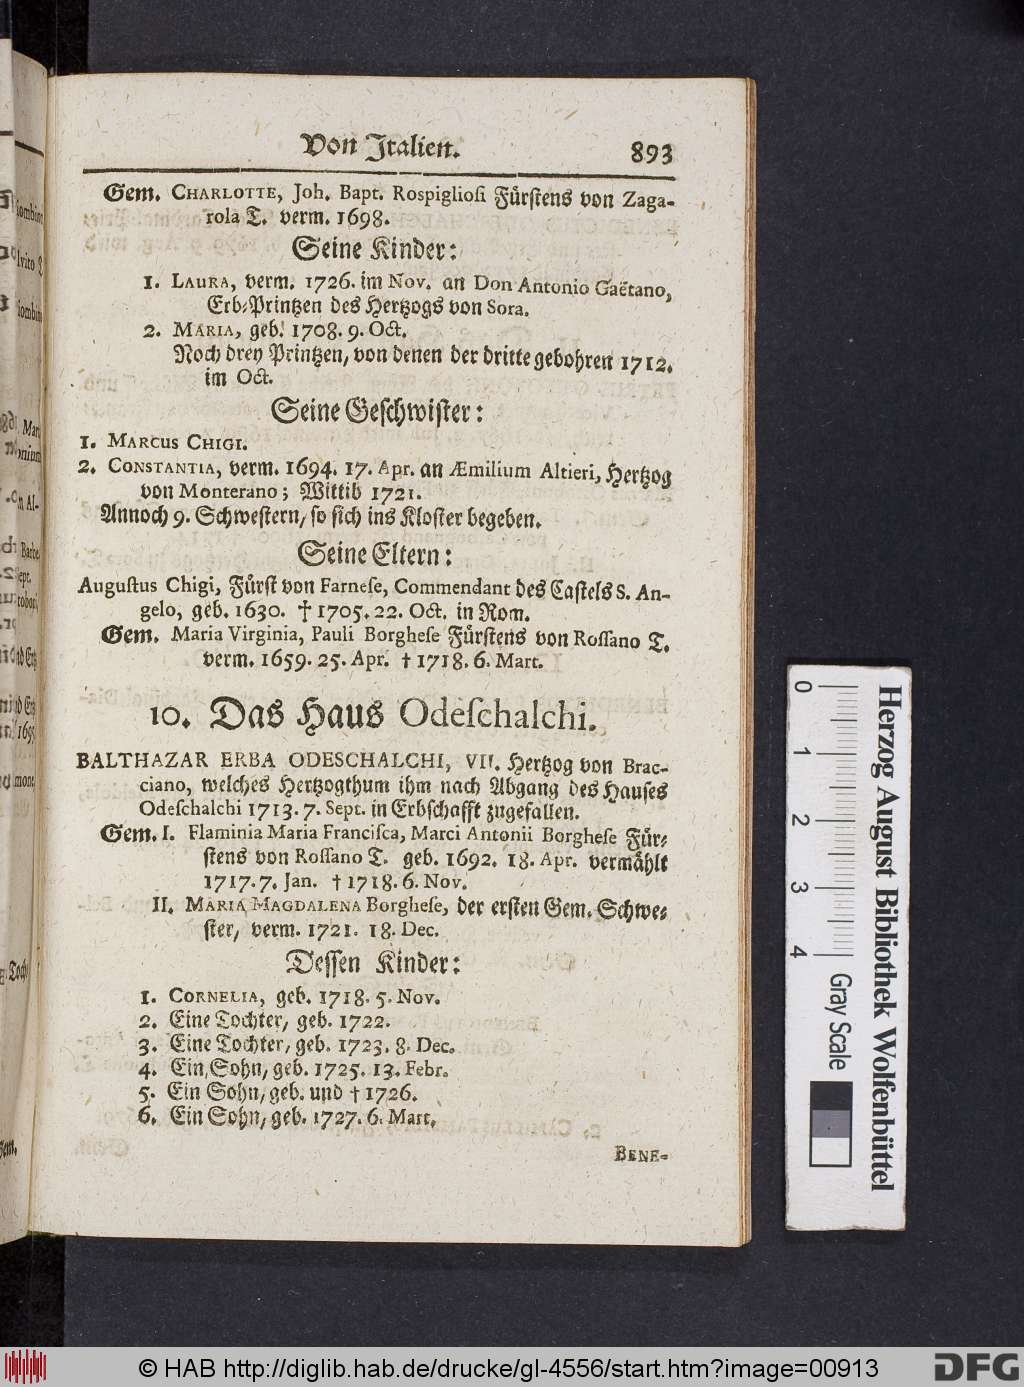 Von Italien. 893
Gem. CHARLOTTE, Joh. Bapt. Rospigliosi Fürstens von Zaga-
rola T. verm. 1698.
Seine Kinder:
1. LAURA, verm. 1726. im Nov. an Don Antonio Gaëtano,
Erb-Printzen des Hertzogs von Sora.
2. MARIA, geb. 1708. 9. Oct.
Noch drey Printzen, von denen der dritte gebohren 1712.
im Oct.
Seine Geschwister:
1. MARCUS CHIGI.
2. CONSTANTIA, verm. 1694. 17. Apr. an Æmilium Altieri, Hertzog
von Monterano; Wittib 1721.
Annoch 9. Schwestern, so sich ins Kloster begeben.
Seine Eltern:
Augustus Chigi, Fürst von Farnese, Commendant des Castels S. An-
gelo, geb. 1630. † 1705. 22. Oct. in Rom.
Gem. Maria Virginia, Pauli Borghese Fürstens von Rossano T.
verm. 1659. 25. Apr. † 1718. 6. Mart.
10. Das Haus Odeschalchi.
BALTHAZAR ERBA ODESCHALCHI, VII. Hertzog von Brac-
ciano, welches Hertzogthum ihm nach Abgang des Hauses
Odeschalchi 1713. 7. Sept. in Erbschafft zugefallen.
Gem. I. Flaminia Maria Francisca, Marci Antonii Borghese Für-
stens von Rossano T. geb. 1692. 18. Apr. vermählt
1717. 7. Jan. † 1718. 6. Nov.
II. MARIA MAGDALENA Borghese, der ersten Gem. Schwe-
ster, verm. 1721. 18. Dec.
Dessen Kinder:
1. CORNELIA, geb. 1718. 5. Nov.
2. Eine Tochter, geb. 1722.
3. Eine Tochter, geb. 1723. 8. Dec.
4. Ein Sohn, geb. 1725. 13. Febr.
5. Ein Sohn, geb. und † 1726.
6. Ein Sohn, geb. 1727. 6. Mart.
BENE-
0 1 2 3 4
Gray Scale
Herzog August Bibliothek Wolfenbüttel
© HAB http://diglib.hab.de/drucke/gl-4556/start.htm?image=00913
DFG